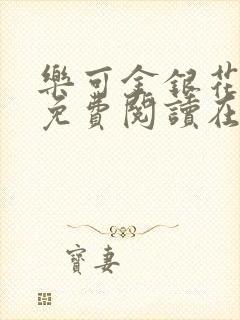 樂可金銀花
免費閱讀在
寶妻